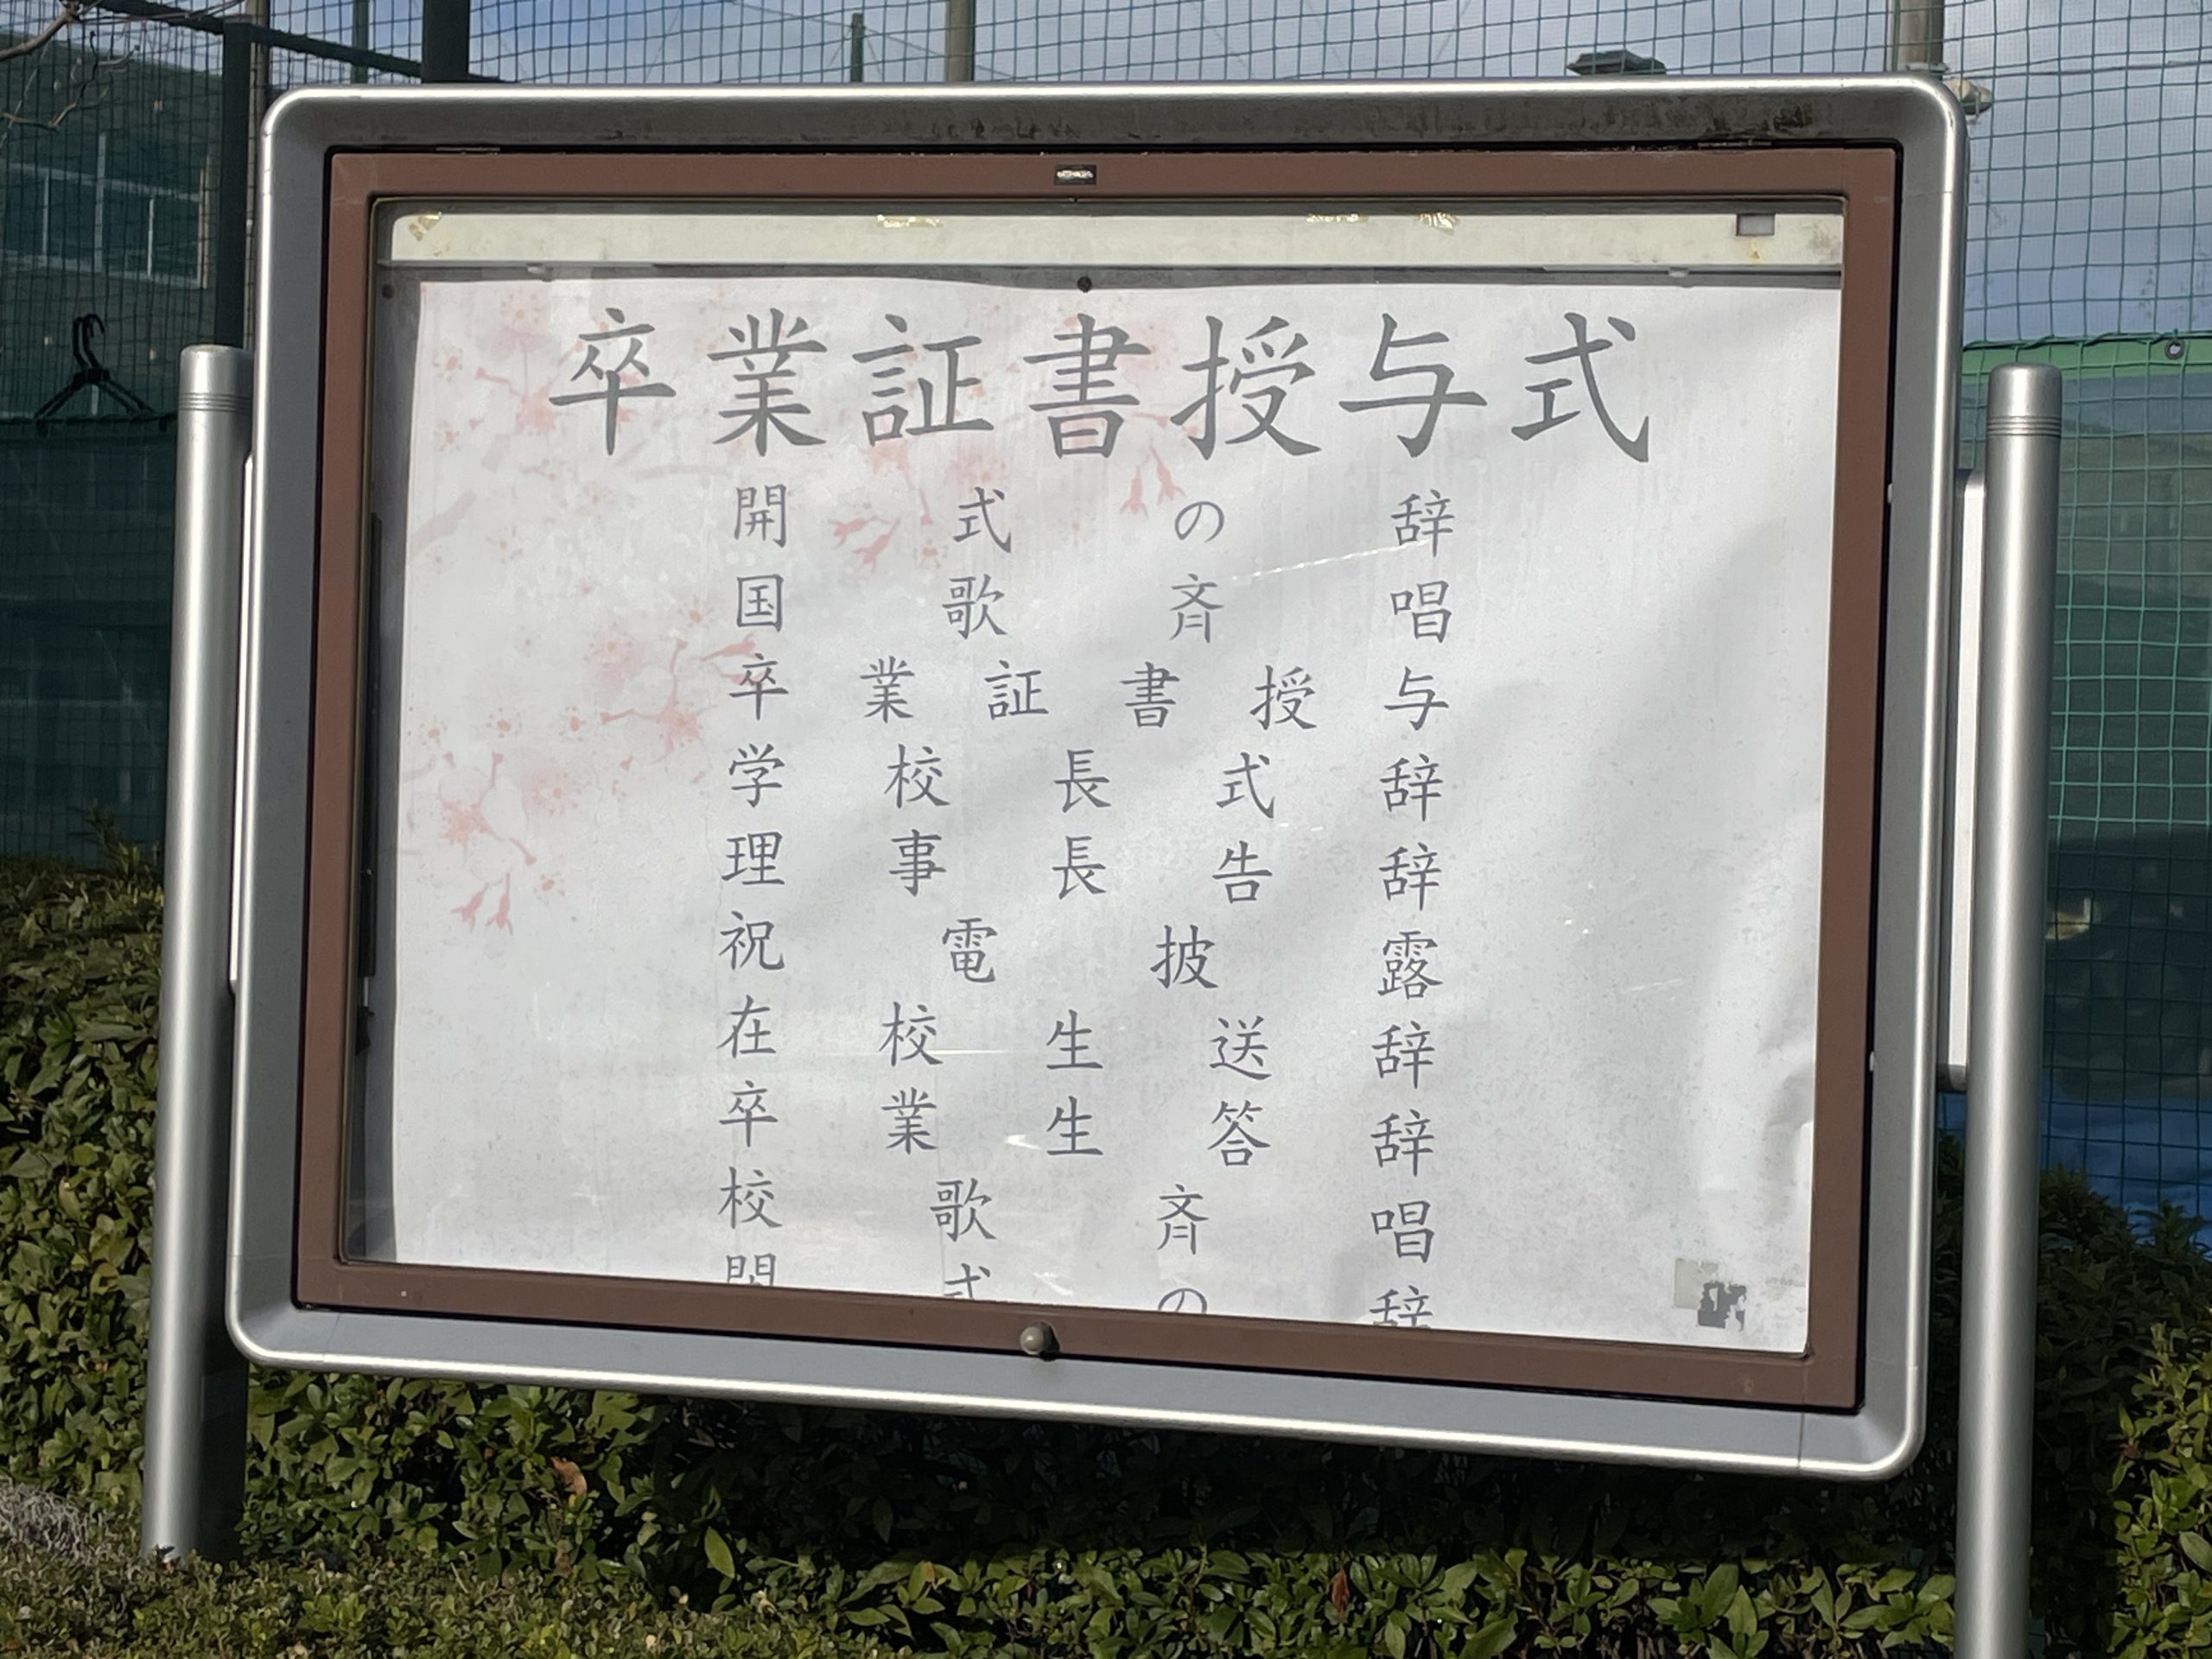 卒業証書授与式
開式の辞
国歌斉唱
卒業証書授与
学校長式辞
理事長告辞
祝電披露
在校生送辞
卒業生答辞
校歌斉唱
閉式の辞